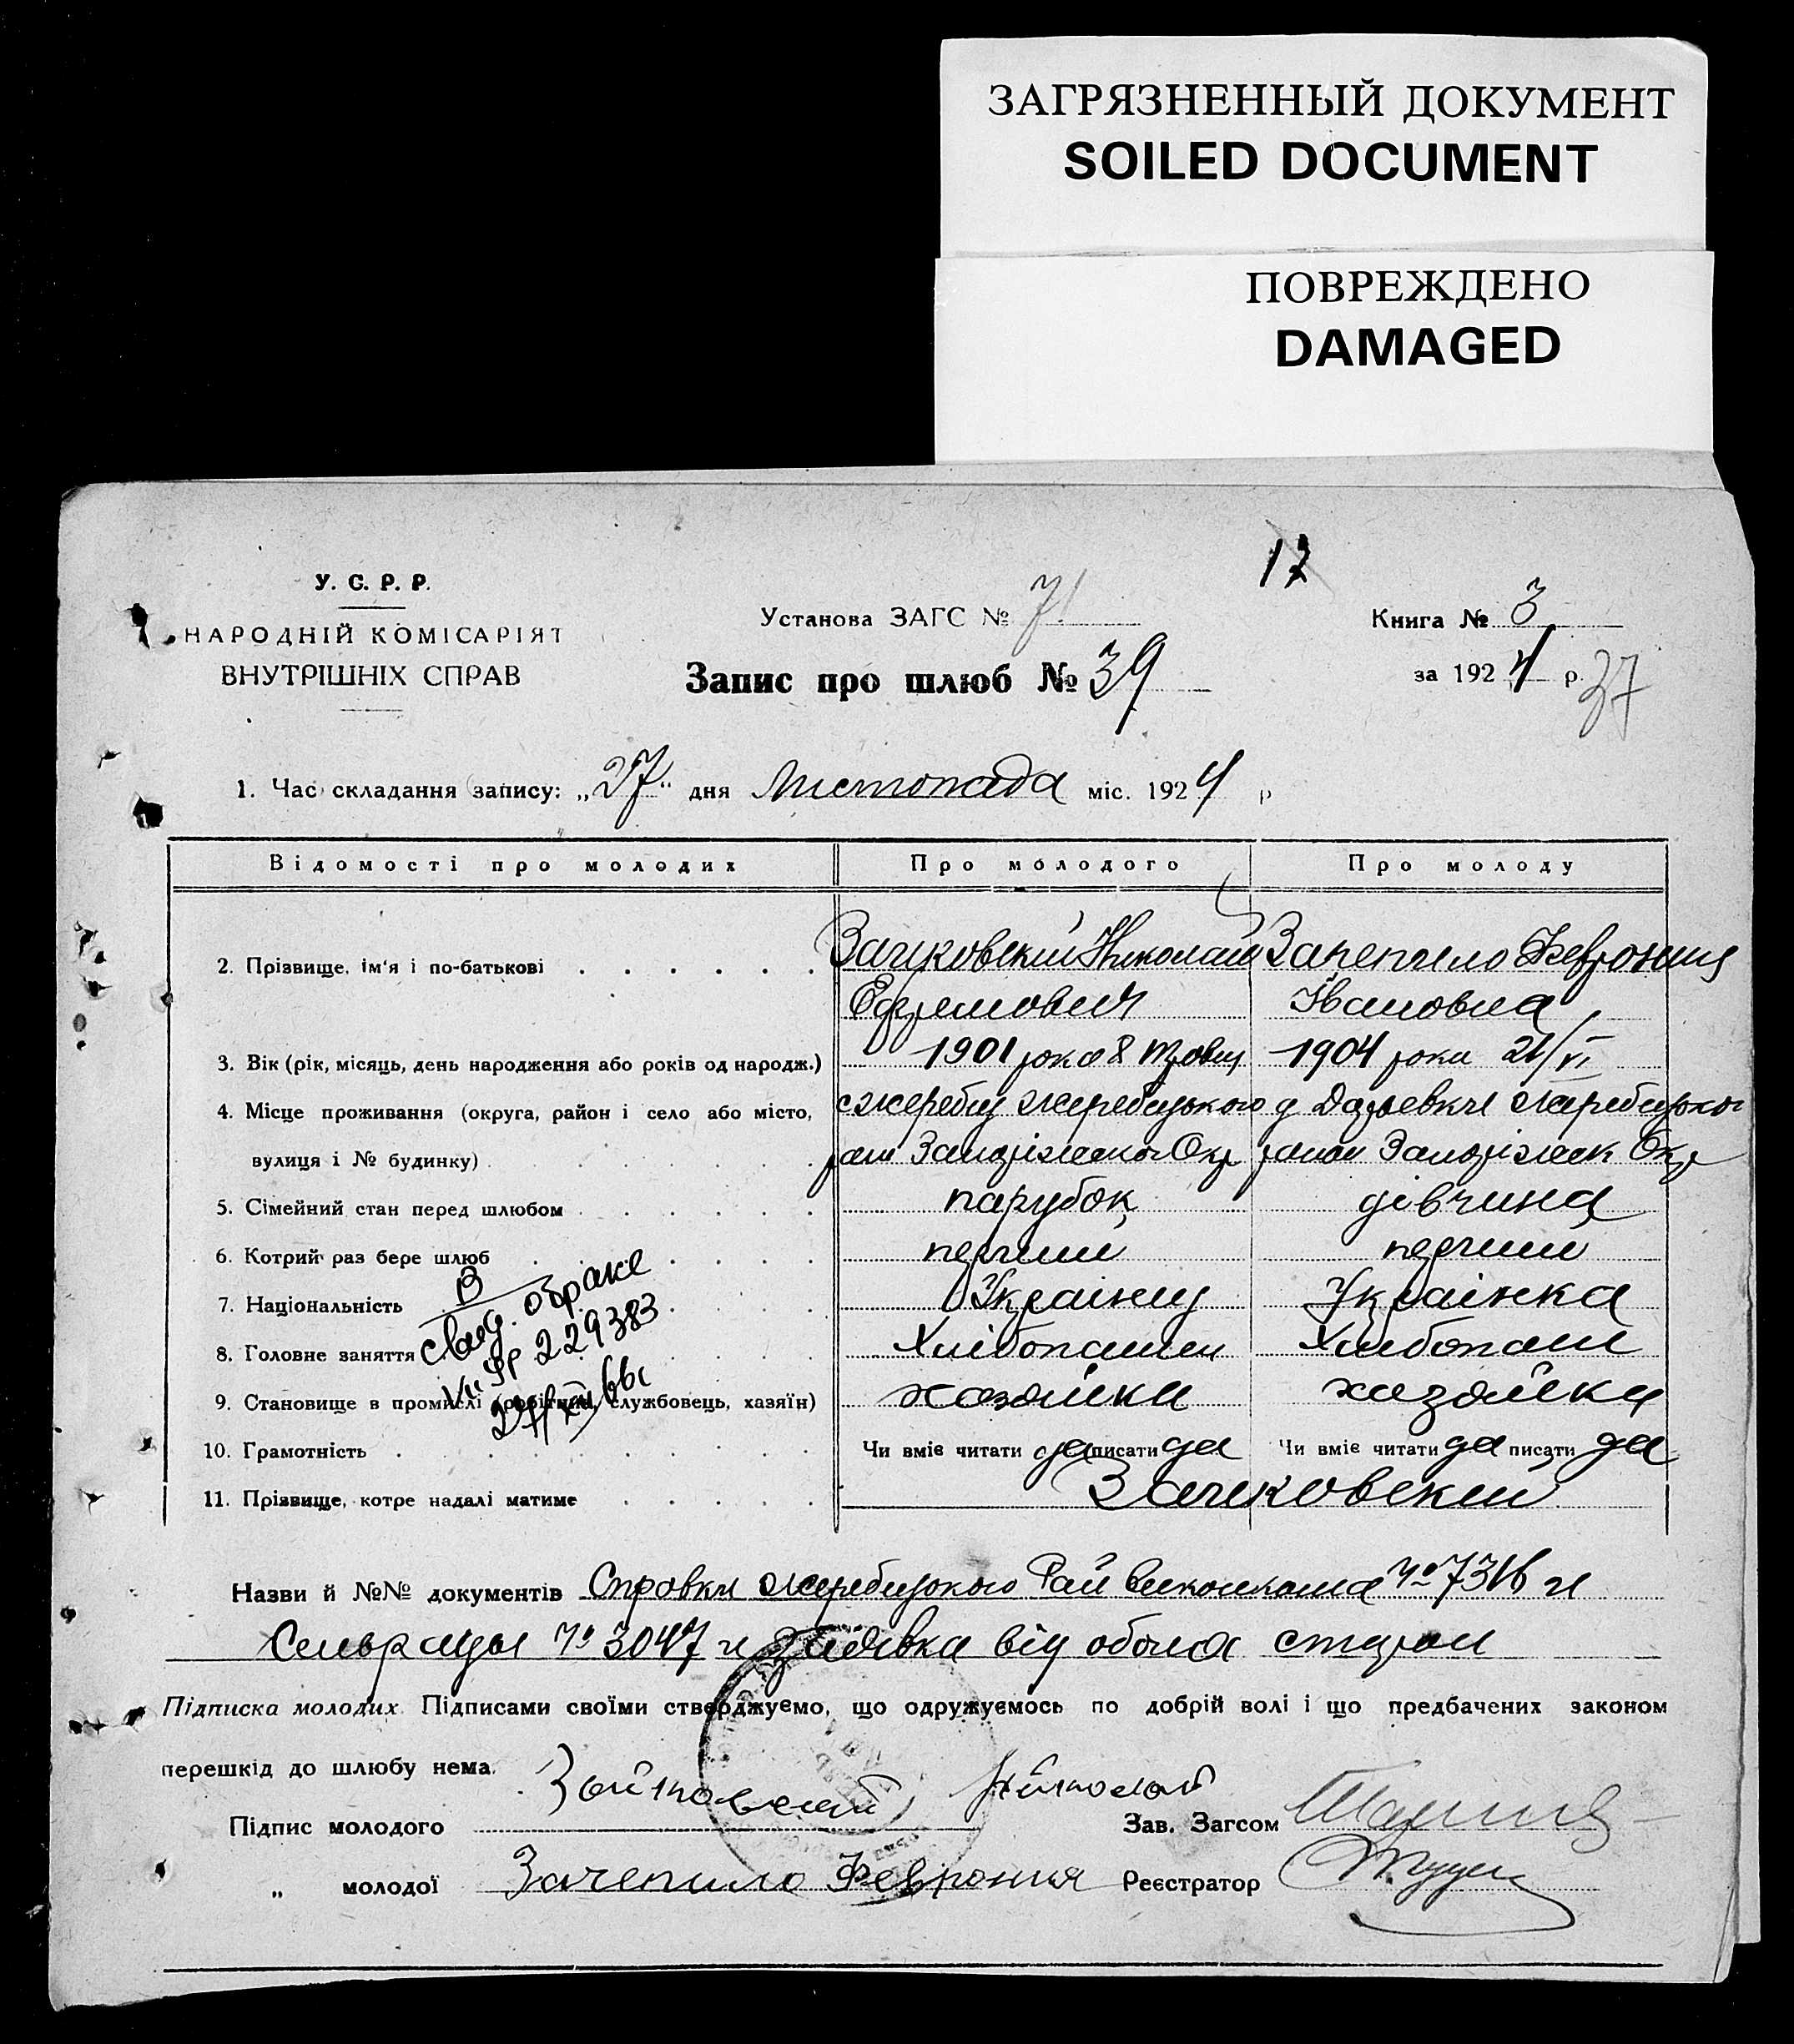 ЗАГРЯЗНЕННЫЙ ДОКУМЕНТ
SOILED DOCUMENT
ПОВРЕЖДЕНО
DAMAGED
17
У. С. Р. Р.
НАРОДНІЙ КОМІСАРІЯТ
ВНУТРІШНІХ СПРАВ
Установа ЗАГС № 7
Запис про шлюб № 39
Книга № 3
за 1924 р.
37
1. Час складання запису: „27" дня Листопада міс. 1924 р
Відомості про молодих Про молодого Про молоду
2. Прізвище, ім'я і по-батькові Зачковський Николай Зачепило Феврония
Ефремович Івановна
3. Вік (рік, місяць, день народження або років од народж.) 1901 року 8 1904 року 21/VI
4. Місце проживання (округа, район і село або місто, с Жеребец Жеребецького д Жеребецького
вулиця і № будинку) рай Запоріжської Окр район Запоріжськ Окр
5. Сімейний стан перед шлюбом парубок дівчина
6. Котрий раз бере шлюб перший перший
7. Національність Українец Українка
8. Головне заняття Хлібопашец Хлібопаш
9. Становище в промислі (робітник, службовець, хазяїн) хозяйка хазяйка
В
свид. о браке
229383
10. Грамотність Чи вміє читати да писати да Чи вміє читати да писати да
11. Прізвище, котре надалі матиме Зачковский
Назви й №№ документів Справки Жеребецького Рай Виконкома № 7316 и
Сельрады № 3047 и заявка від обоих сторон
Підписка молодих. Підписами своїми стверджуємо, що одружуємось по добрій волі і що предбачених законом
перешкід до шлюбу нема.
Підпис молодого Зайковский Николай Зав. Загсом
„ молодої Зачепило Феврония Реєстратор